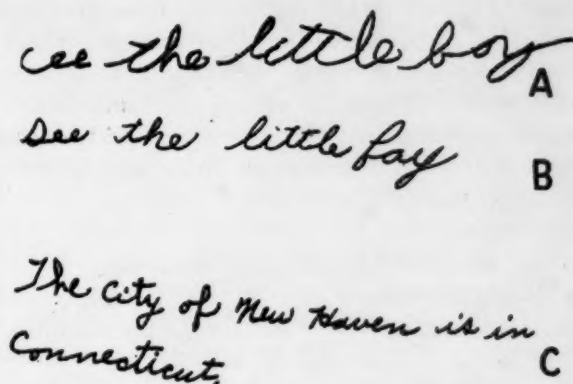 cee the little boy
A
see the little fay
B
The city of New Haven is in
Connecticut.
C